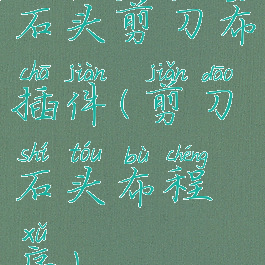 石头剪刀布
chā jiàn jiǎn dāo
插件(剪刀
shí tóu bù chéng
石头布程
xù
序)